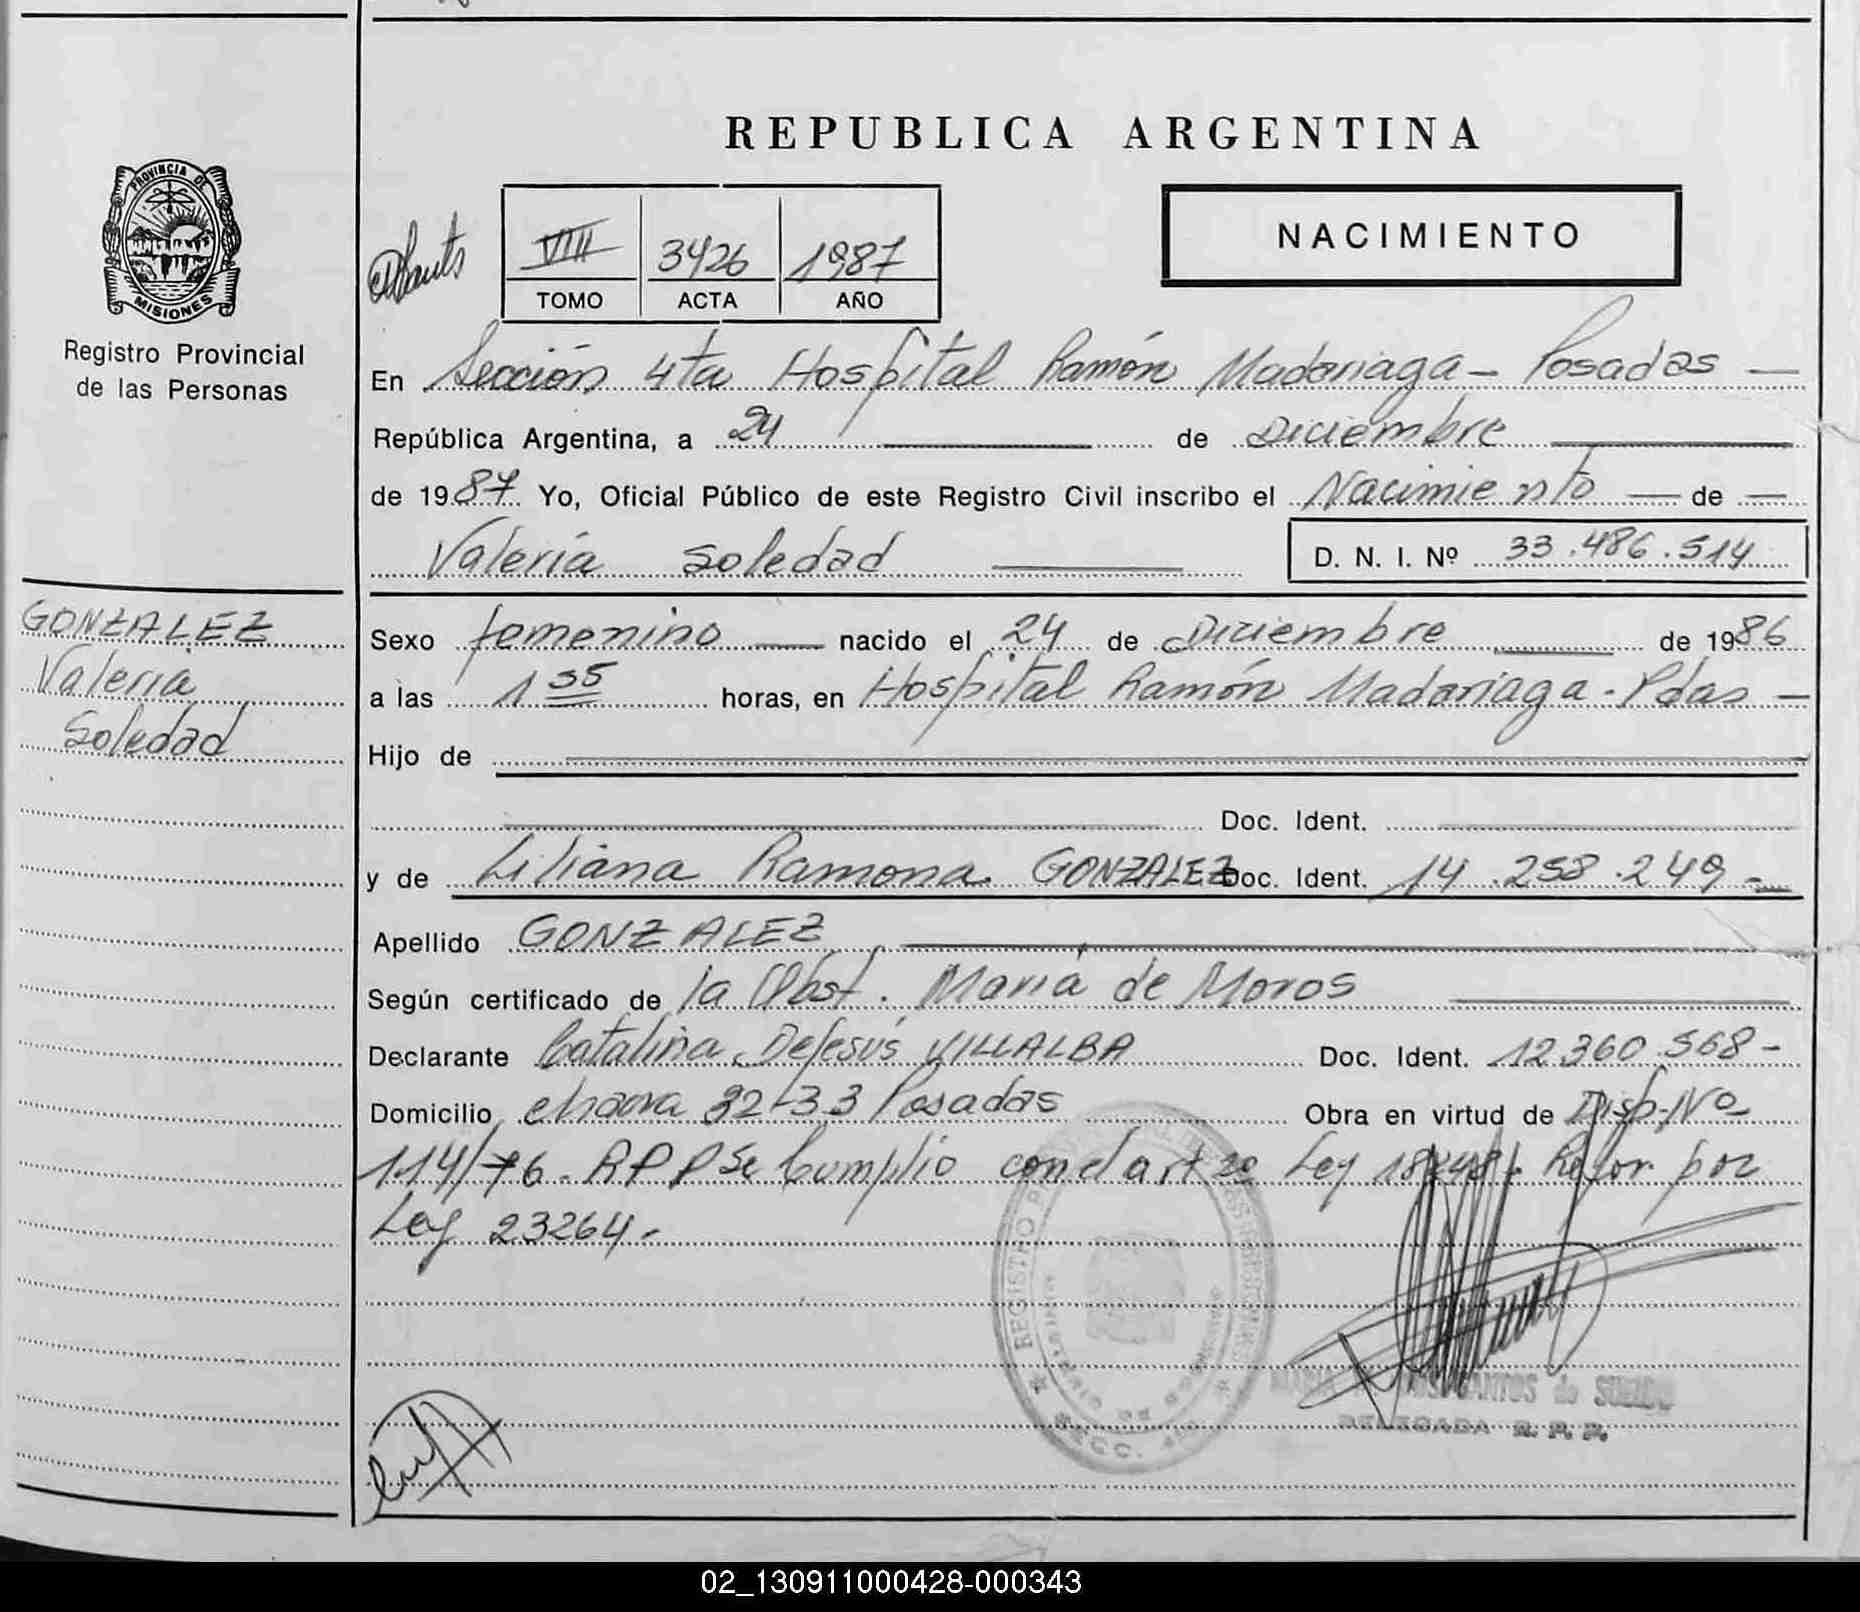 REPUBLICA ARGENTINA
PROVINCIA DE
MISIONES
Registro Provincial
de las Personas
NACIMIENTO
VIII 3426 1987
TOMO ACTA AÑO
En Sección 4ta Hospital Ramón Madariaga - Posadas —
República Argentina, a 24 de Diciembre
de 1987 Yo, Oficial Público de este Registro Civil inscribo el Nacimiento — de —
Valeria Soledad
D. N. I. Nº 33.486.514
GONZALEZ
Valeria
Soledad
Sexo femenino — nacido el 24 de Diciembre de 1986
a las 1 35 horas, en Hospital Ramón Madariaga - Pdas —
Hijo de
Doc. Ident.
y de Liliana Ramona GONZALEZ Doc. Ident. 14.258.249 -
Apellido GONZALEZ
Según certificado de la Obst. María de Moros
Declarante Catalina Dejesús VILLALBA Doc. Ident. 12.360.568 -
Domicilio chacra 32-33 Posadas Obra en virtud de Disp. Nº
114/76 - RPP Se Cumplio con el art 20 Ley 18248 . Refor. por
Ley 23264 -
REGISTRO
SECC.
SANTOS de
DELEGADA R. P. P.
02_130911000428-000343